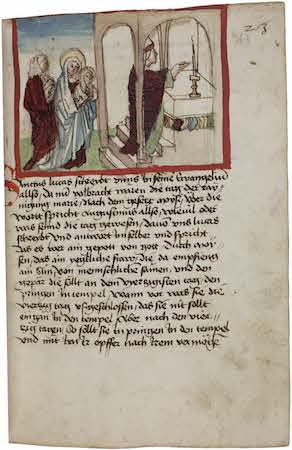 Sanctus lucas schreibt vnns in seine Ewangelio
also, da nü volbracht waren die tag der ray-
nigung marie, Nach dem gesetz moysy, vber die
wortt spricht augustinus also, wieuil oder
was seind die tag gewesen, dauo vns lucas
schreibt Vnd antwort im selber vnd spricht
Das es vor ain gepott von gott durch moy-
sen, das ain yegkliche fraw, die da empfieng
ain Sün von mennschliche samen, vnd den
gepar die sollt an dem viertzigsten tag, den
pringen in tempel, Wann vor was sie die
viertzig tag vßgeschlossen, das sie nit sollt
eingan in den tempel, Aber nach den vier-
tzig tagen So sollt sie in pringen in den tempel
vnd mit im ir opffer nach irem vermöge
3